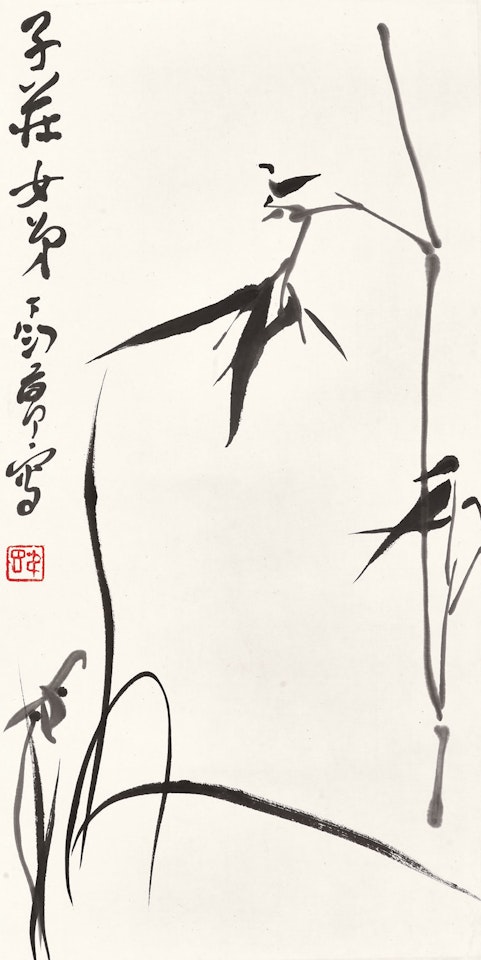 子莊女弟丁衍庸寫